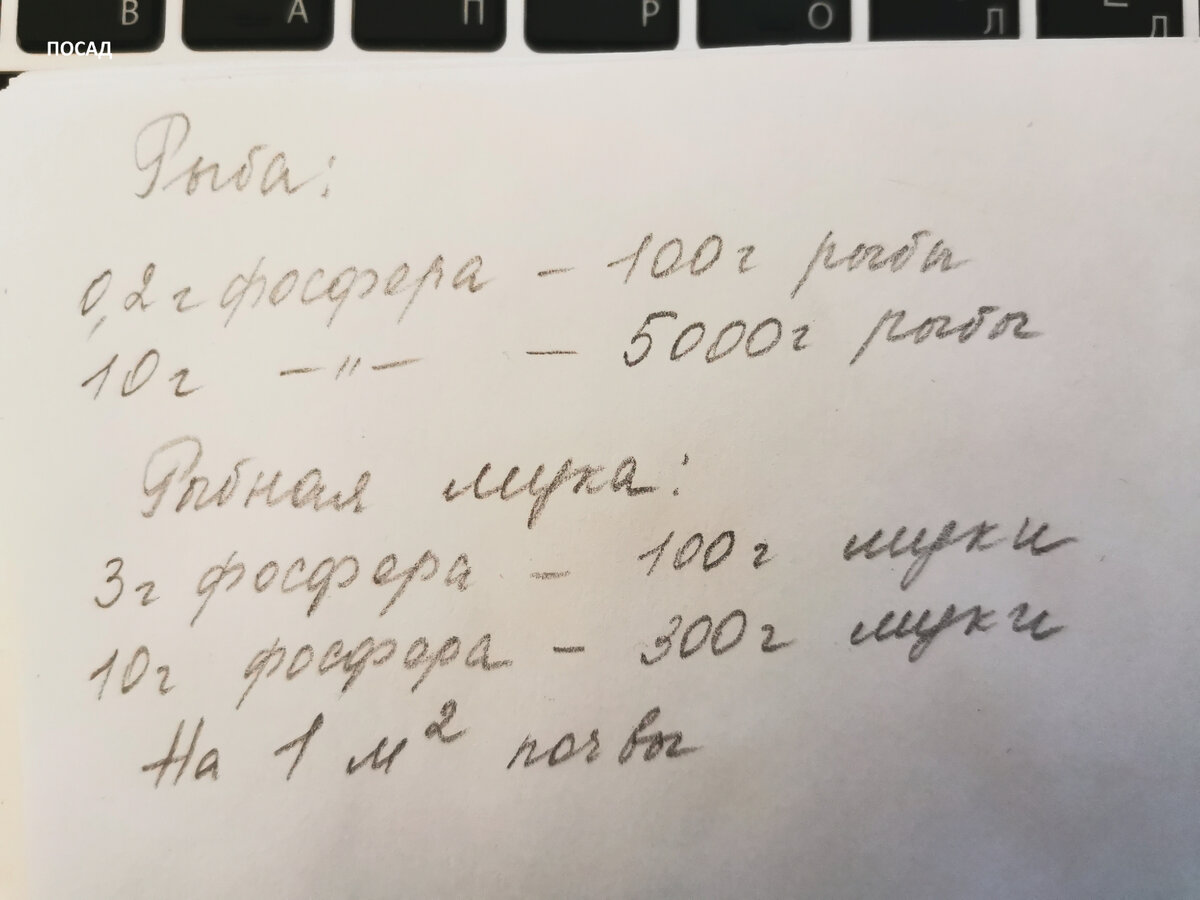 В А П Р О Л Д
ПОСАД
Рыба:
0,2г фосфора – 100г рыбы
10г –"– – 5000г рыбы
Рыбная мука:
3г фосфора – 100г муки
10г фосфора – 300г муки
На 1 м² почвы